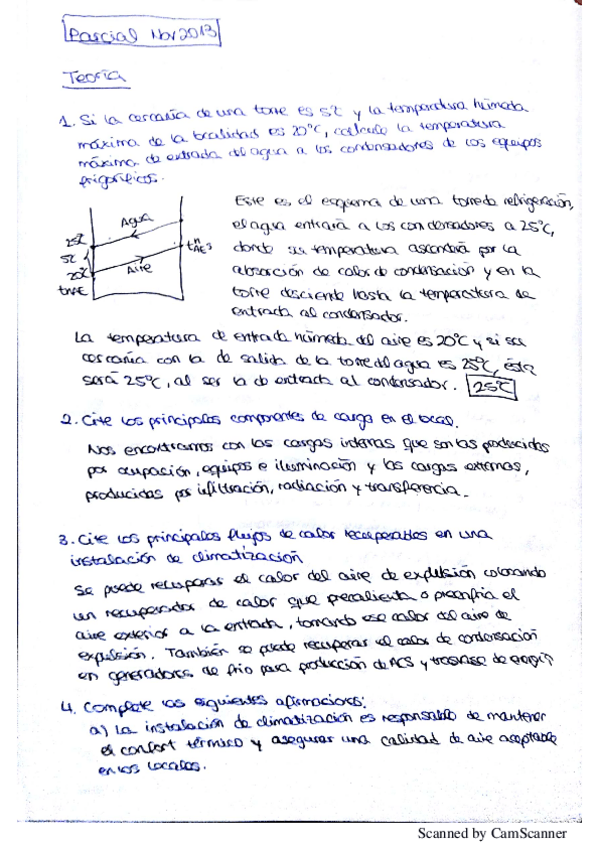 Parcial Nov 2013
Teoría
1. Si la cercanía de una torre es 5℃ y la temperatura húmeda
máxima de la localidad es 20°C, calcule la temperatura
máxima de entrada del agua a los condensadores de los equipos
frigoríficos.
Este es el esquema de una torre de refrigeración,
el agua entrará a los condensadores a 25°C,
donde su temperatura ascenderá por la
absorción de calor de condensación y en la
torre desciende hasta la temperatura de
entrada al condensador.
Agua
25℃
5℃
20℃
Aire
La temperatura de entrada húmeda del aire es 20°C y si su
cercanía con la de salida de la torre del agua es 25℃, ésta
será 25°C, al ser la de entrada al condensador. 25℃
2. Cite los principales componentes de carga en el local.
Nos encontramos con las cargas internas que son las producidas
por ocupación, equipos e iluminación y las cargas externas,
producidas por infiltración, radiación y transferencia.
3. Cite los principales flujos de calor recuperables en una
instalación de climatización
Se puede recuperar el calor del aire de expulsión colocando
un recuperador de calor que precalienta o preenfria el
aire exterior a la entrada, tomando ese calor del aire de
expulsión. También se puede recuperar el calor de condensación
en generadores de frio para producción de ACS y trasvase de
4. Complete las siguientes afirmaciones:
a) La instalación de climatización es responsable de mantener
el confort térmico y asegurar una calidad de aire aceptable
en los locales.
Scanned by CamScanner